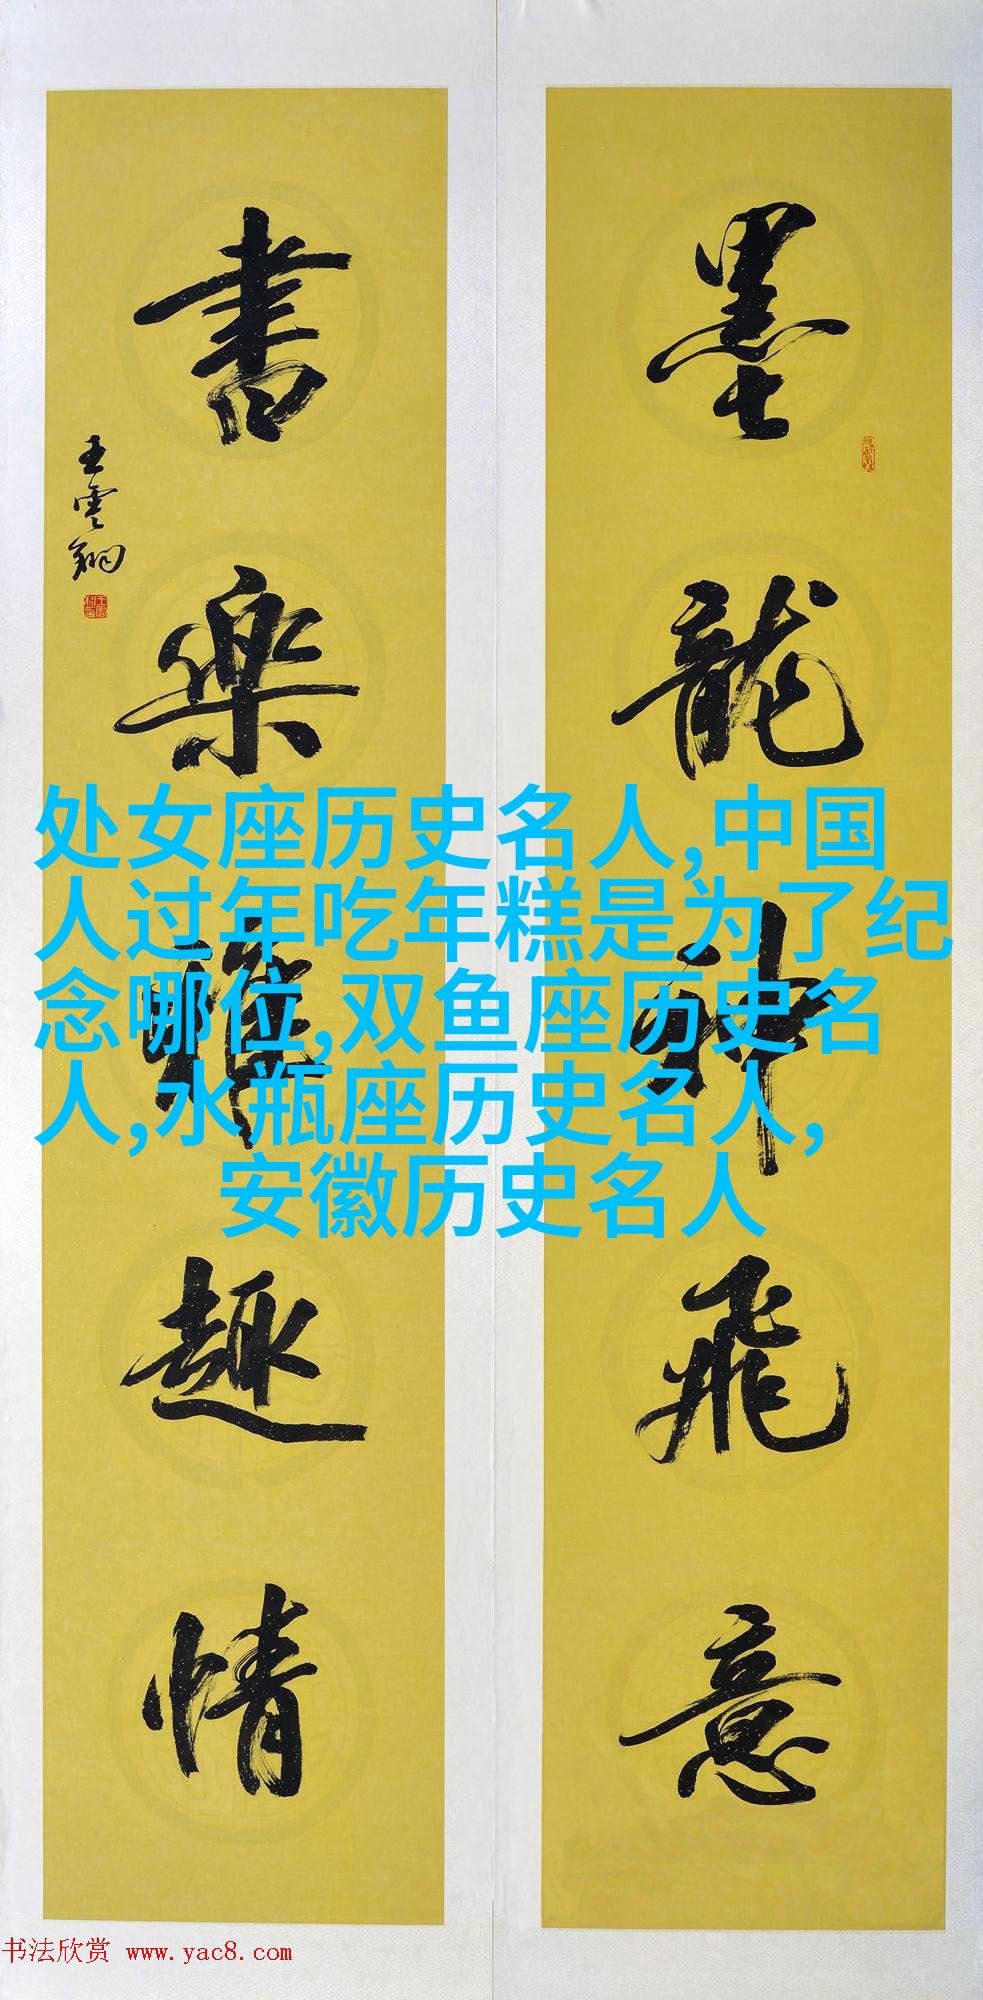 墨龍神飛意
書樂雅趣情
王雲翔
处女座历史名人,中国
人过年吃年糕是为了纪
念哪位,双鱼座历史名
人,水瓶座历史名人,
安徽历史名人
书法欣赏 www.yac8.com